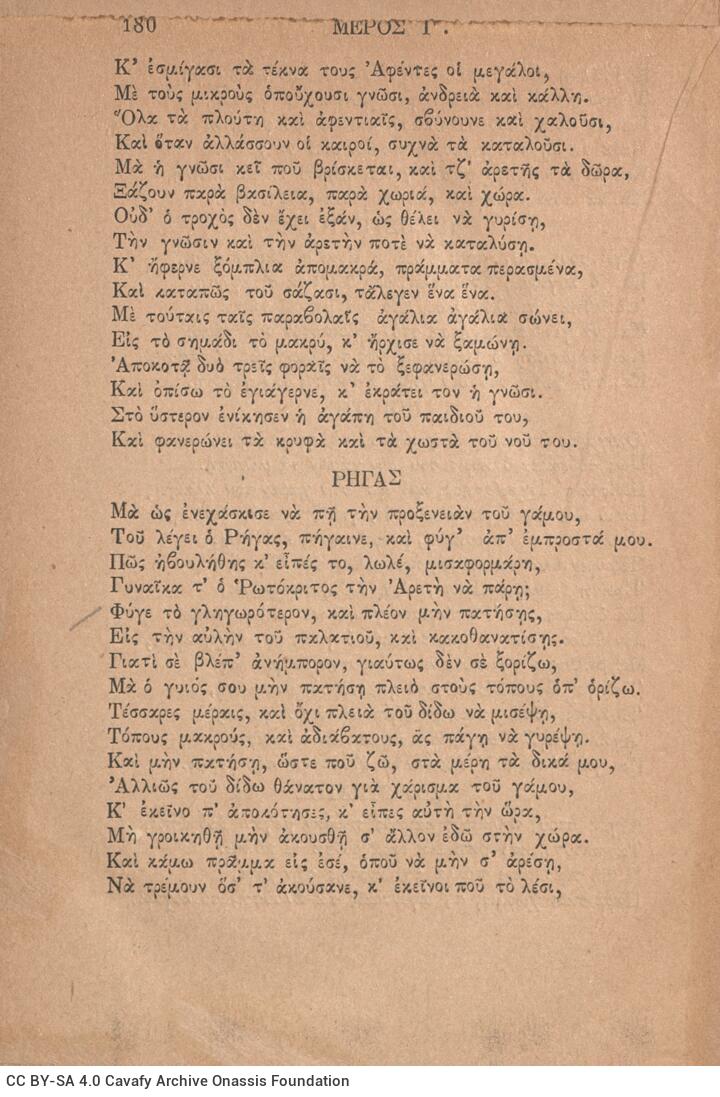 180 ΜΕΡΟΣ Γ'.
Κ' ἐσμίγασι τὰ τέκνα τους Ἀφέντες οἱ μεγάλοι,
Μὲ τοὺς μικροὺς ὁποὔχουσι γνῶσι, ἀνδρειὰ καὶ κάλλη.
Ὅλα τὰ πλούτη καὶ ἀφεντιαῖς, σβύνουνε καὶ χαλοῦσι,
Καὶ ὅταν ἀλλάσσουν οἱ καιροί, συχνὰ τὰ καταλοῦσι.
Μὰ ἡ γνῶσι κεῖ ποῦ βρίσκεται, καὶ τζ' ἀρετῆς τὰ δῶρα,
Ξάζουν παρὰ βασίλεια, παρὰ χωριά, καὶ χώρα.
Οὐδ' ὁ τροχὸς δὲν ἔχει ἐξάν, ὡς θέλει νὰ γυρίσῃ,
Τὴν γνῶσιν καὶ τὴν ἀρετὴν ποτὲ νὰ καταλύσῃ.
Κ' ἤφερνε ξόμπλια ἀπομακρά, πράμματα περασμένα,
Καὶ καταπῶς τοῦ σάζασι, τἄλεγεν ἕνα ἕνα.
Μὲ τούταις ταῖς παραβολαῖς ἀγάλια ἀγάλια σώνει,
Εἰς τὸ σημάδι τὸ μακρύ, κ' ἤρχισε νὰ ξαμώνῃ.
Ἀποκοτᾷ δυὸ τρεῖς φοραῖς νὰ τὸ ξεφανερώσῃ,
Καὶ ὀπίσω τὸ ἐγιάγερνε, κ' ἐκράτει τον ἡ γνῶσι.
Στὸ ὕστερον ἐνίκησεν ἡ ἀγάπη τοῦ παιδιοῦ του,
Καὶ φανερώνει τὰ κρυφὰ καὶ τὰ χωστὰ τοῦ νοῦ του.
ΡΗΓΑΣ
Μὰ ὡς ἐνεχάσκισε νὰ πῇ τὴν προξενειὰν τοῦ γάμου,
Τοῦ λέγει ὁ Ρήγας, πήγαινε, καὶ φύγ' ἀπ' ἐμπροστά μου.
Πῶς ἠβουλήθης κ' εἶπές το, λωλέ, μισαφορμάρη,
Γυναῖκα τ' ὁ Ῥωτόκριτος τὴν Ἀρετὴ νὰ πάρῃ;
Φύγε τὸ γληγωρότερον, καὶ πλέον μὴν πατήσῃς,
Εἰς τὴν αὐλὴν τοῦ παλατιοῦ, καὶ κακοθανατίσῃς.
Γιατὶ σὲ βλέπ' ἀνήμπορον, γιαύτως δὲν σὲ ξορίζω,
Μὰ ὁ γυιός σου μὴν πατήσῃ πλειὸ στοὺς τόπους ὁπ' ὁρίζω.
Τέσσαρες μέραις, καὶ ὄχι πλειὰ τοῦ δίδω νὰ μισέψῃ,
Τόπους μακρούς, καὶ ἀδιάβατους, ἂς πάγῃ νὰ γυρέψῃ.
Καὶ μὴν πατήσῃ, ὥστε ποῦ ζῶ, στὰ μέρη τὰ δικά μου,
Ἀλλιῶς τοῦ δίδω θάνατον γιὰ χάρισμα τοῦ γάμου,
Κ' ἐκεῖνο π' ἀποκότησες, κ' εἶπες αὐτὴ τὴν ὥρα,
Μὴ γροικηθῇ μὴν ἀκουσθῇ σ' ἄλλον ἐδῶ στὴν χώρα.
Καὶ κάμω πρᾶμμα εἰς ἐσέ, ὁποῦ νὰ μὴν σ' ἀρέσῃ,
Νὰ τρέμουν ὅσ' τ' ἀκούσανε, κ' ἐκεῖνοι ποῦ τὸ λέσι,
CC BY-SA 4.0 Cavafy Archive Onassis Foundation